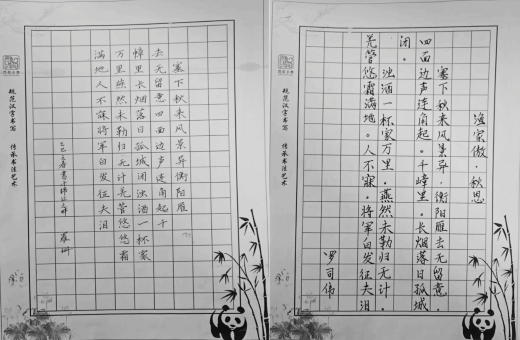 规范汉字书写 传承书法艺术
塞下秋来风景异衡阳雁
去无留意四面边声连角起千
嶂里长烟落日孤城闭浊酒一杯家
万里燕然未勒归无计羌管悠悠霜
满地人不寐将军白发征夫泪
规范汉字书写 传承书法艺术
渔家傲·秋思
塞下秋来风景异.衡阳雁去无留意.
四面边声连角起。千嶂里.长烟落日孤城
闭。
浊酒一杯家万里.燕然未勒归无计.
羌管悠霜满地。人不寐.将军白发征夫泪
罗司伟